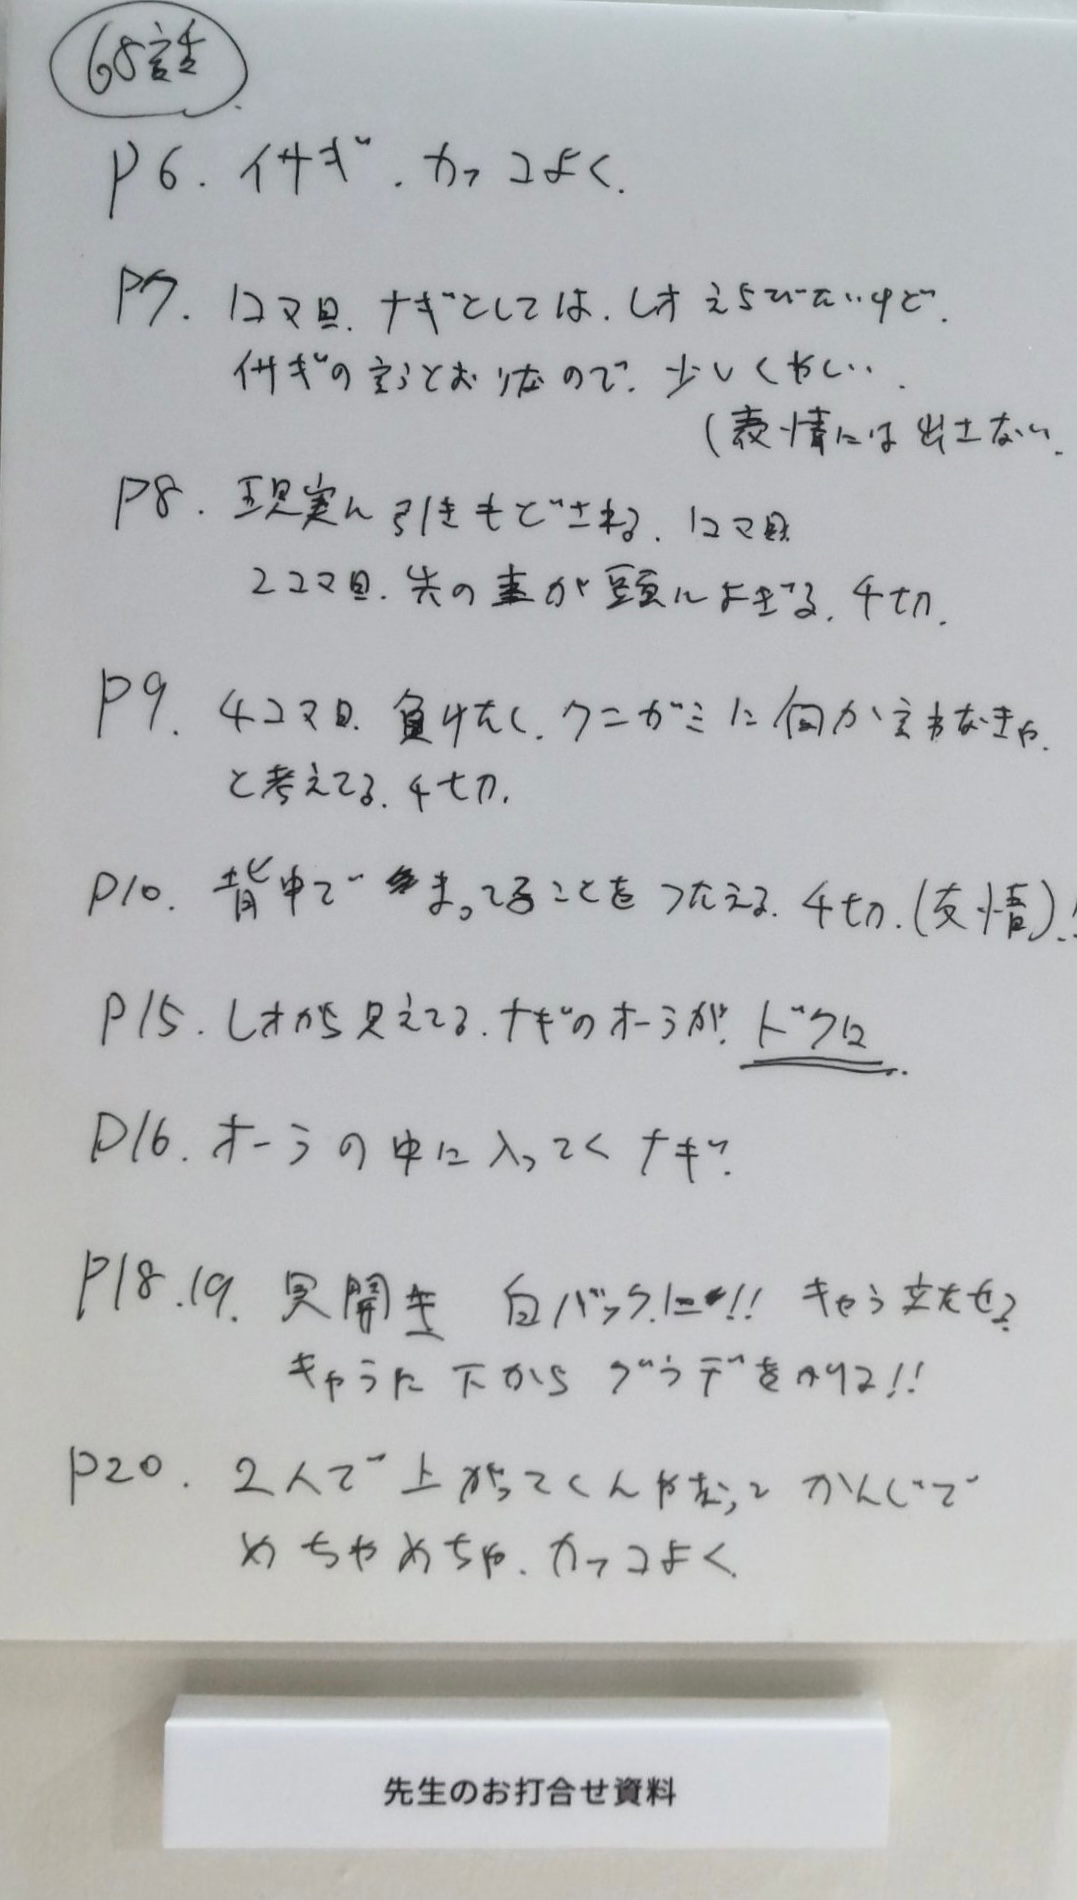 68話
P6. イサギ. カッコよく.
P7. 1コマ目. ナギとしては. レオえらびたいけど.
イサギの言うとおりなので. 少しくやしい.
(表情には出さない.
P8. 現実に引きもどされる. 1コマ目
2コマ目. 先の事が頭によぎる. 千切.
P9. 4コマ目. 負けたし. クニガミに何か言わなきゃ.
と考えてる. 千切.
P10. 背中でまってることをつたえる. 千切. (友情)!
P15. レオから見えてる. ナギのオーラが. ドクロ.
P16. オーラの中に入ってくナギ.
P18.19. 見開き 白バックに!! キャラ立たせる
キャラに下からグラデをかける!!
P20. 2人で上がってくんやなってかんじで
めちゃめちゃ. カッコよく.
先生のお打合せ資料